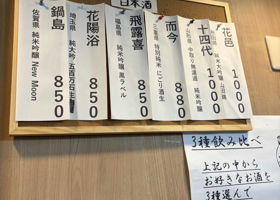 日本酒
花邑
純米大吟醸
1000
十四代
山形県 中取り無濾過 純米吟醸
1000
而今
三重県 特別純米 にごり酒生
850
飛露喜
福島県 純米吟醸 黒ラベル
850
花陽浴
埼玉県 純大吟 五百万石
850
鍋島
佐賀県 純米吟醸 New Moon
850
3種飲み比べ
上記の中から
お好きなお酒を
3種選んで